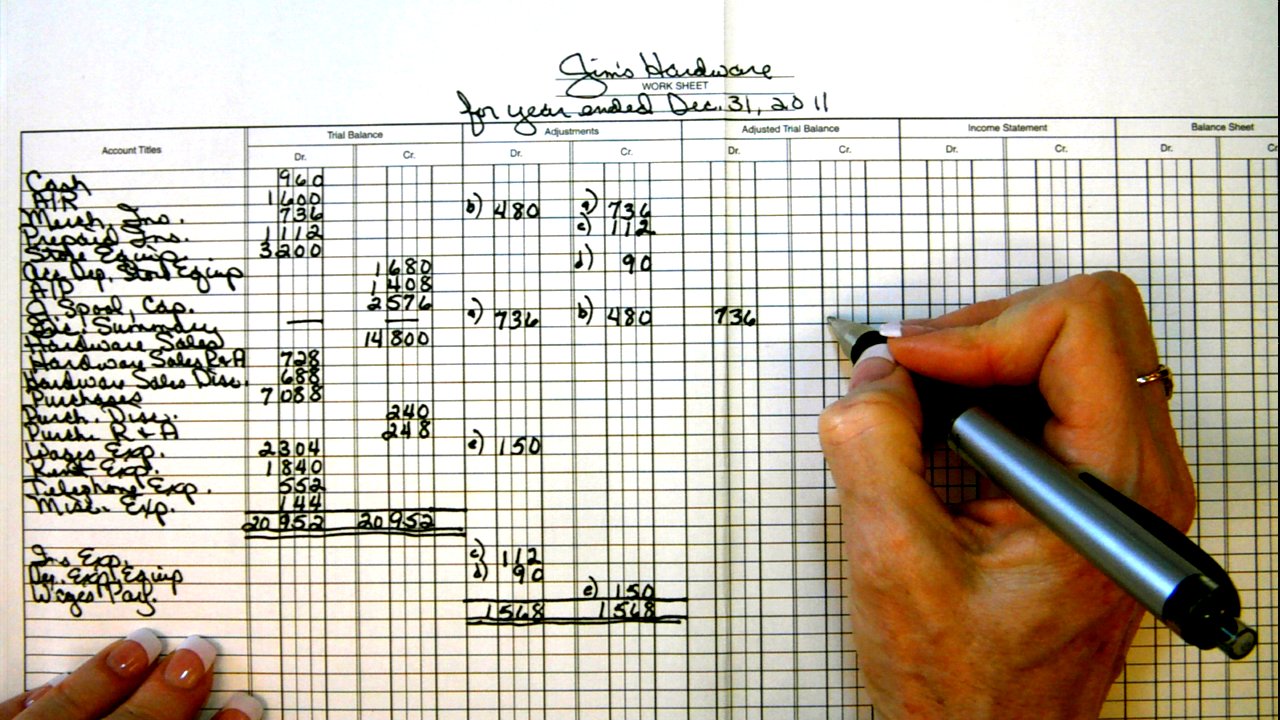 Jim's Hardware
WORK SHEET
for year ended Dec. 31, 2011
Account Titles Trial Balance Adjustments Adjusted Trial Balance Income Statement Balance Sheet
Dr. Cr. Dr. Cr. Dr. Cr. Dr. Cr. Dr. Cr
Cash 960
A/R 1600
Merch. Inv. 736 b) 480 a) 736
Prepaid Ins. 1112 c) 112
Store Equip. 3200
Acc. Dep. Store Equip 1680 d) 90
A/P 1408
O. Spool, Cap. 2576
Inc. Summary — — a) 736 b) 480 736
Hardware Sales 14800
Hardware Sales R&A 728
Hardware Sales Disc. 688
Purchases 7088
Purch. Disc. 240
Purch. R & A 248
Wages Exp. 2304 e) 150
Rent Exp. 1840
Telephone Exp. 552
Misc. Exp. 144
20952 20952
Ins Exp. c) 112
Dep. Exp. Equip d) 90
Wages Pay. e) 150
1568 1568